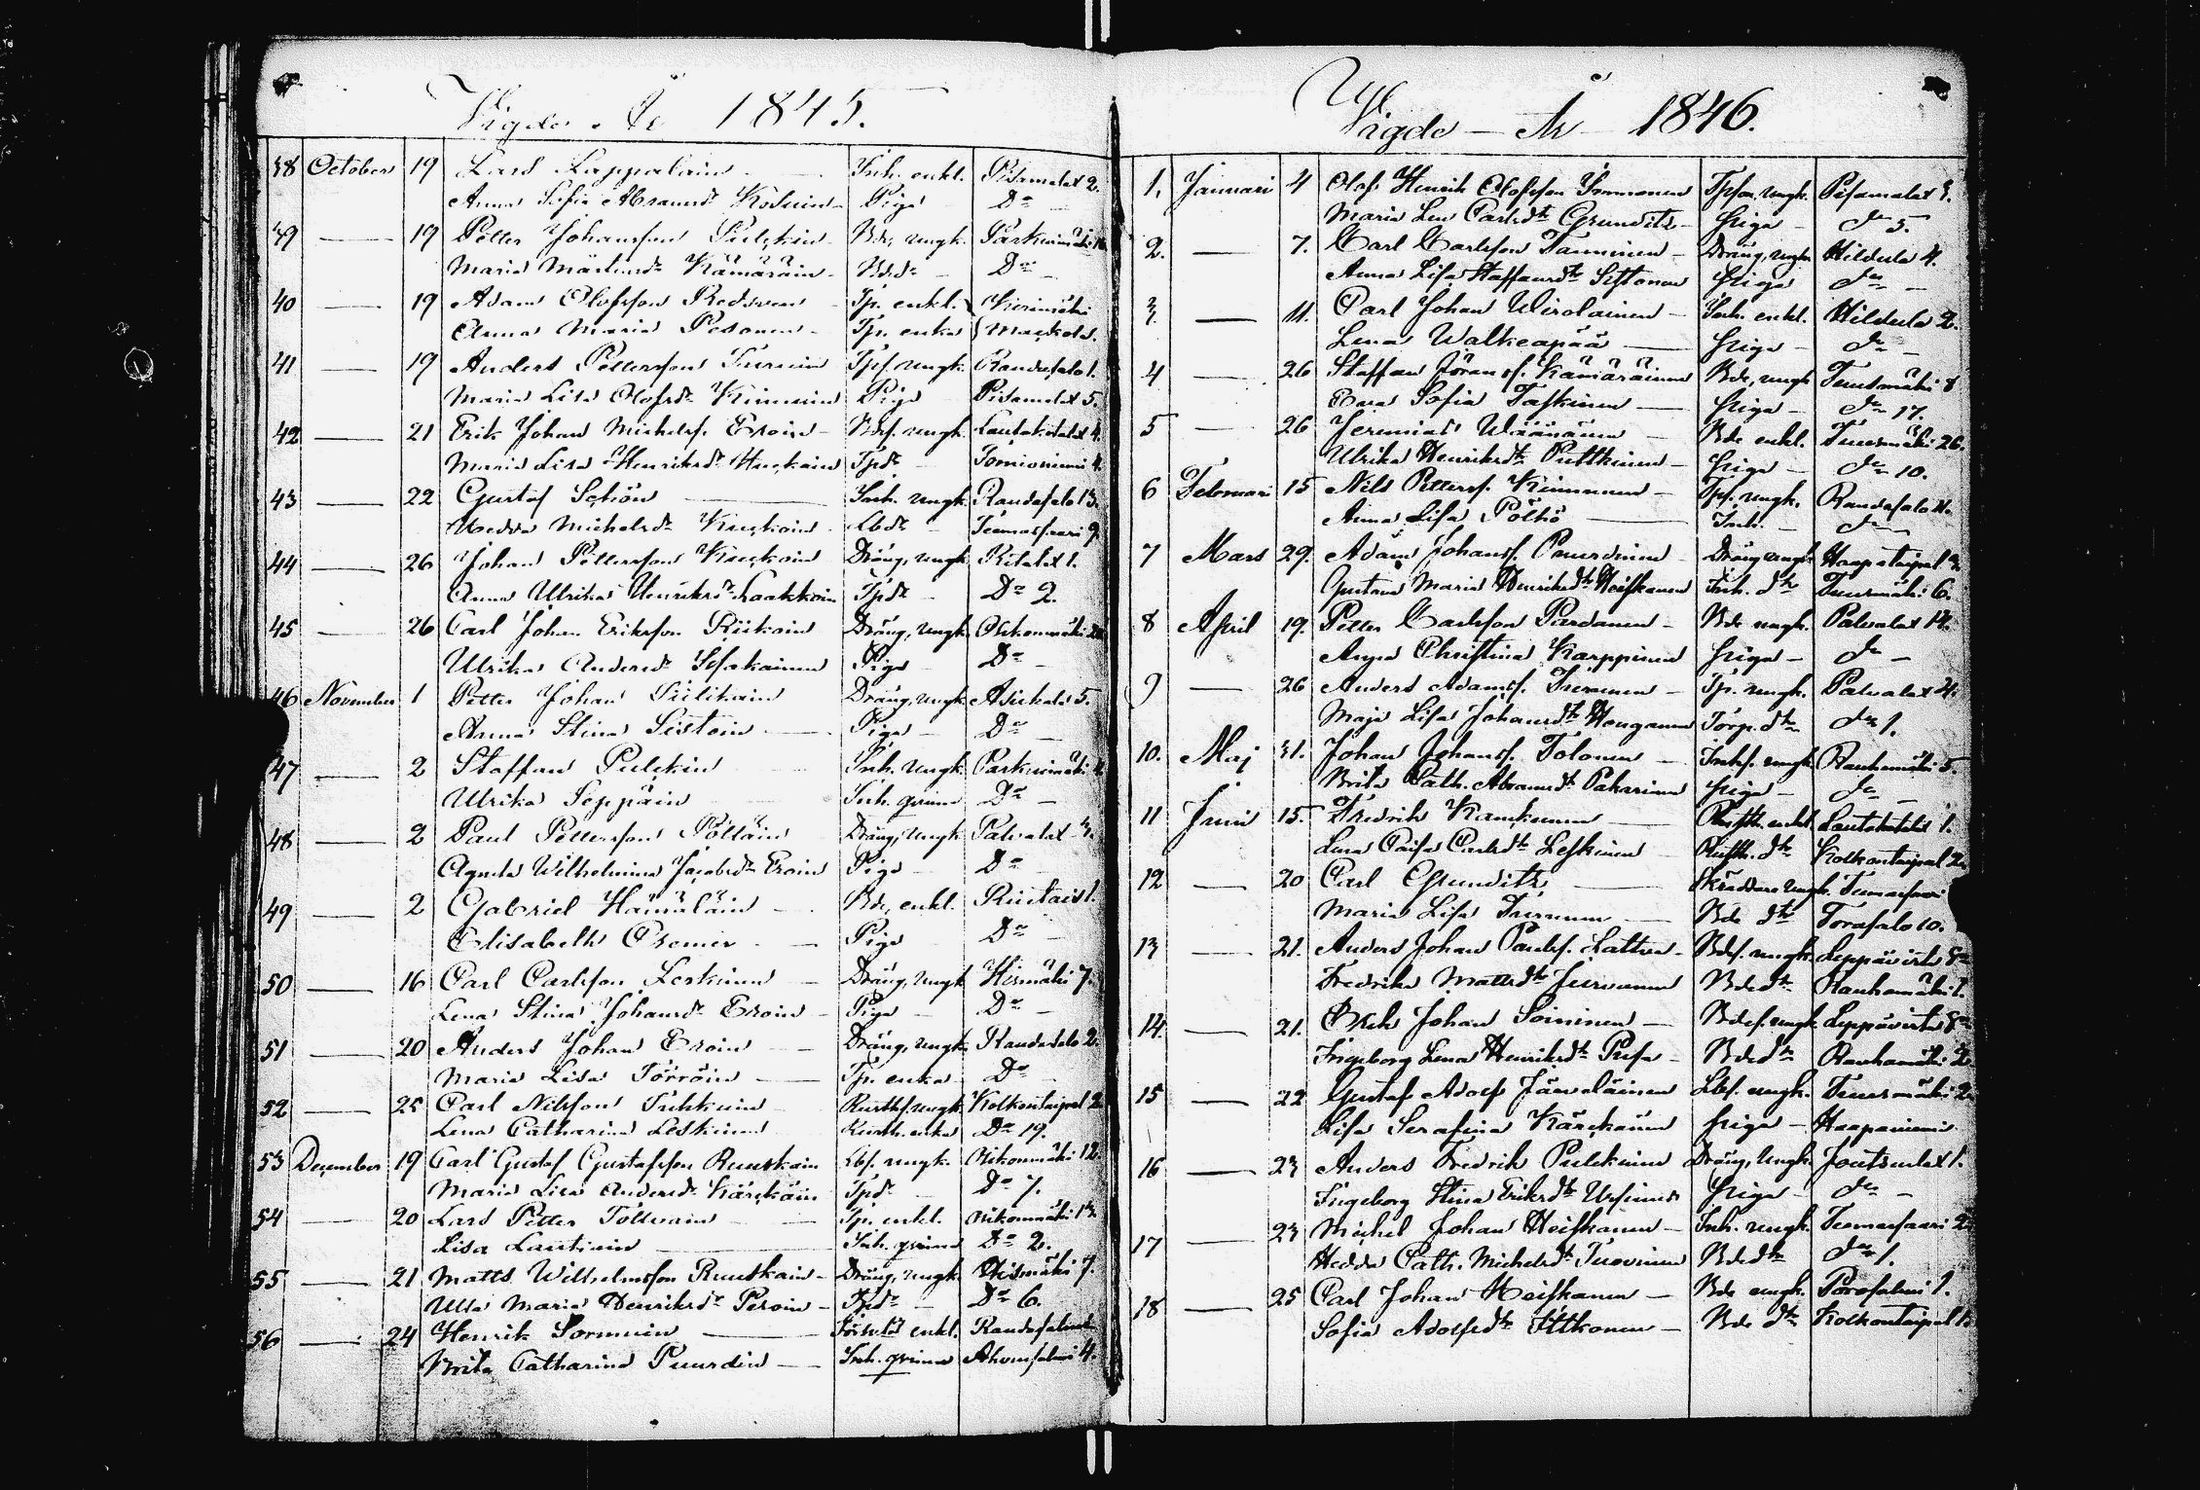 Vigde År 1845.
38 October 19 Lars Lappalain Inh. enkl. Pisamalax 2.
Anna Sofia Abramsdr Piga Do
39 — 19 Petter Johansson Pulckin Bde, ungk. Parkuinmäki
Maria Mårtensdr Kämäräin Bdedr Do
40 — 19 Adam Olofsson Tp. enkl.
Anna Maria Pesonen Tp. enka
41 — 19 Anders Pettersson Tpf. ungk. Randasalo 1.
Maria Lisa Olofsdr Kinnuin Piga Pisamalax 5.
42 — 21 Erik Johan Michelsf. Eroin Bdf. ungk. Lautakotalax 4.
Maria Lisa Henriksdr Tpdr Tornioniemi 4.
43 — 22 Gustaf Schön Inh. ungk. Randasalo 13.
Hedda Michelsdr Lbdr Teemassaari 9.
44 — 26 Johan Pettersson Dräng, ungk. Ritalax 1.
Anna Ulrika Henriksdr Laakkoin Tpdr Do 2.
45 — 26 Carl Johan Eriksson Riikoin Dräng, ungk. Osikonmäki
Ulrika Andersdr Piga Do
46 November 1 Petter Johan Dräng, ungk. 5.
Anna Stina Sistoin Piga Do
47 — 2 Staffan Pulckin Inh. ungk. Parkuinmäki 4.
Ulrika Seppäin Inh. qvinna Do
48 — 2 Paul Pettersson Pölläin Dräng, ungk. Palvalax 3.
Agneta Wilhelmina Jacobsdr Eroin Piga Do
49 — 2 Gabriel Hämäläin Bde, enkl. 1.
Elisabeth Cremer Piga Do
50 — 16 Carl Carlsson Leskinen Dräng, ungk. Hirmäki 7.
Lena Stina Johansdr Eroin Piga Do
51 — 20 Anders Johan Eroin Dräng, ungk. Randasalo 2.
Maria Lisa Törröin Tp. enka Do
52 — 25 Carl Nilsson Kolkontaipal 2.
Lena Catharina Leskinen Do 19.
53 December 19 Carl Gustaf Gustafsson Ruuskain Lbf. ungk. Nikonmäki 12.
Maria Lisa Andersdr Kärckäin Tpdr Do 7.
54 — 20 Lars Petter Tölwäin Tp. enkl. Nikonmäki 13.
Lisa Lautiain Inh. qvinna Do 2.
55 — 21 Matts Wilhelmsson Ruuskain Dräng, ungk. Hirmäki 7.
Ulla Maria Henriksdr Peroin Tpdr Do 6.
56 — 24 Henrik Sormuin enkl.
Brita Catharina Puurdin Inh. qvinna Ahvensalmi 4.
Vigde — År 1846.
1. Januari 4 Olof Henrik Olofsson Immonen Tpson, ungk. Pisamalax 3.
Maria Lena Carlsdtr Grunditz piga do 5.
2. — 7. Carl Carlsson Tanninen Dräng, ungk. Hildula 4.
Anna Lisa Staffansdtr Sistonen piga do
3. — 11. Carl Johan Wirolainen Inh. enkl. Hildula 2.
Lena Walkeapää piga do
4 — 26 Staffan Göransf. Kämäräinen Bde, ungk. Tuusmäki 8
Eva Sofia Taskinen piga do 17.
5 — 26 Jeremias Wäänänen Bde enkl. Tuusmäki 26.
Ulrika Henriksdtr Pulkkinen piga do 10.
6 Februari 15 Nils Pettersf. Kinnunen Tpf. ungk. Randasalo 11.
Anna Lisa Pölkö Inh. do
7 Mars 29. Adam Johansf. Puurdinen Dräng ungk. Haapataipal 3.
Gustava Maria Henriksdtr Heiskanen Inh. dtr Tuusmäki 6.
8 April 19. Petter Carlsson Pardanen Bde ungk. Palvalax 14.
Anna Christina Karppinen piga do
9 — 26 Anders Adamsf. Tp. ungk. Palvalax 4.
Maja Lisa Johansdtr Honganen Torp. dtr do 1.
10. Maj 31. Johan Johansf. Tolonen Inhf. ungk. Rauhamäki 5.
Brita Cath. Abramsdtr Pakarinen piga do
11 Juni 15. Fredrik Kamkunen enkl. Lautakotalax 1.
Lena Caisa Carlsdtr Leskinen dtr Kolkontaipal 2.
12 — 20 Carl Grunditz Skräddare ungk. Teemassaari
Maria Lisa Bde dtr Torasalo 10.
13 — 21. Anders Johan Paulsf. Lattva Bdf. ungk. Leppävirta
Fredrika Mattsdtr Juvonen Bdedtr Rauhamäki 1.
14. — 21. Erik Johan Soininen Bdef. ungk. Leppävirta
Ingeborg Lena Henriksdtr Bdedtr Rauhamäki 2
15 — 22 Gustaf Adolf Jämäläinen Lbf. ungk. Tuusmäki 2.
Lisa Serafina Kärckäinen piga Haapaniemi
16 — 23 Anders Fredrik Pulckinen Dräng, ungk. Joutsenlax 1.
Ingeborg Stina Eriksdtr Ursinus piga do
17 — 23 Michel Johan Heiskanen Inh. ungk. Teemassaari 2.
Hedda Cath. Michelsdtr Turovinen Bdedtr do 1.
18 — 25 Carl Johan Heiskanen Bde ungk. Porosalmi 1.
Sofia Adolfsdtr Ittkonen Bde dtr Kolkontaipal 1.